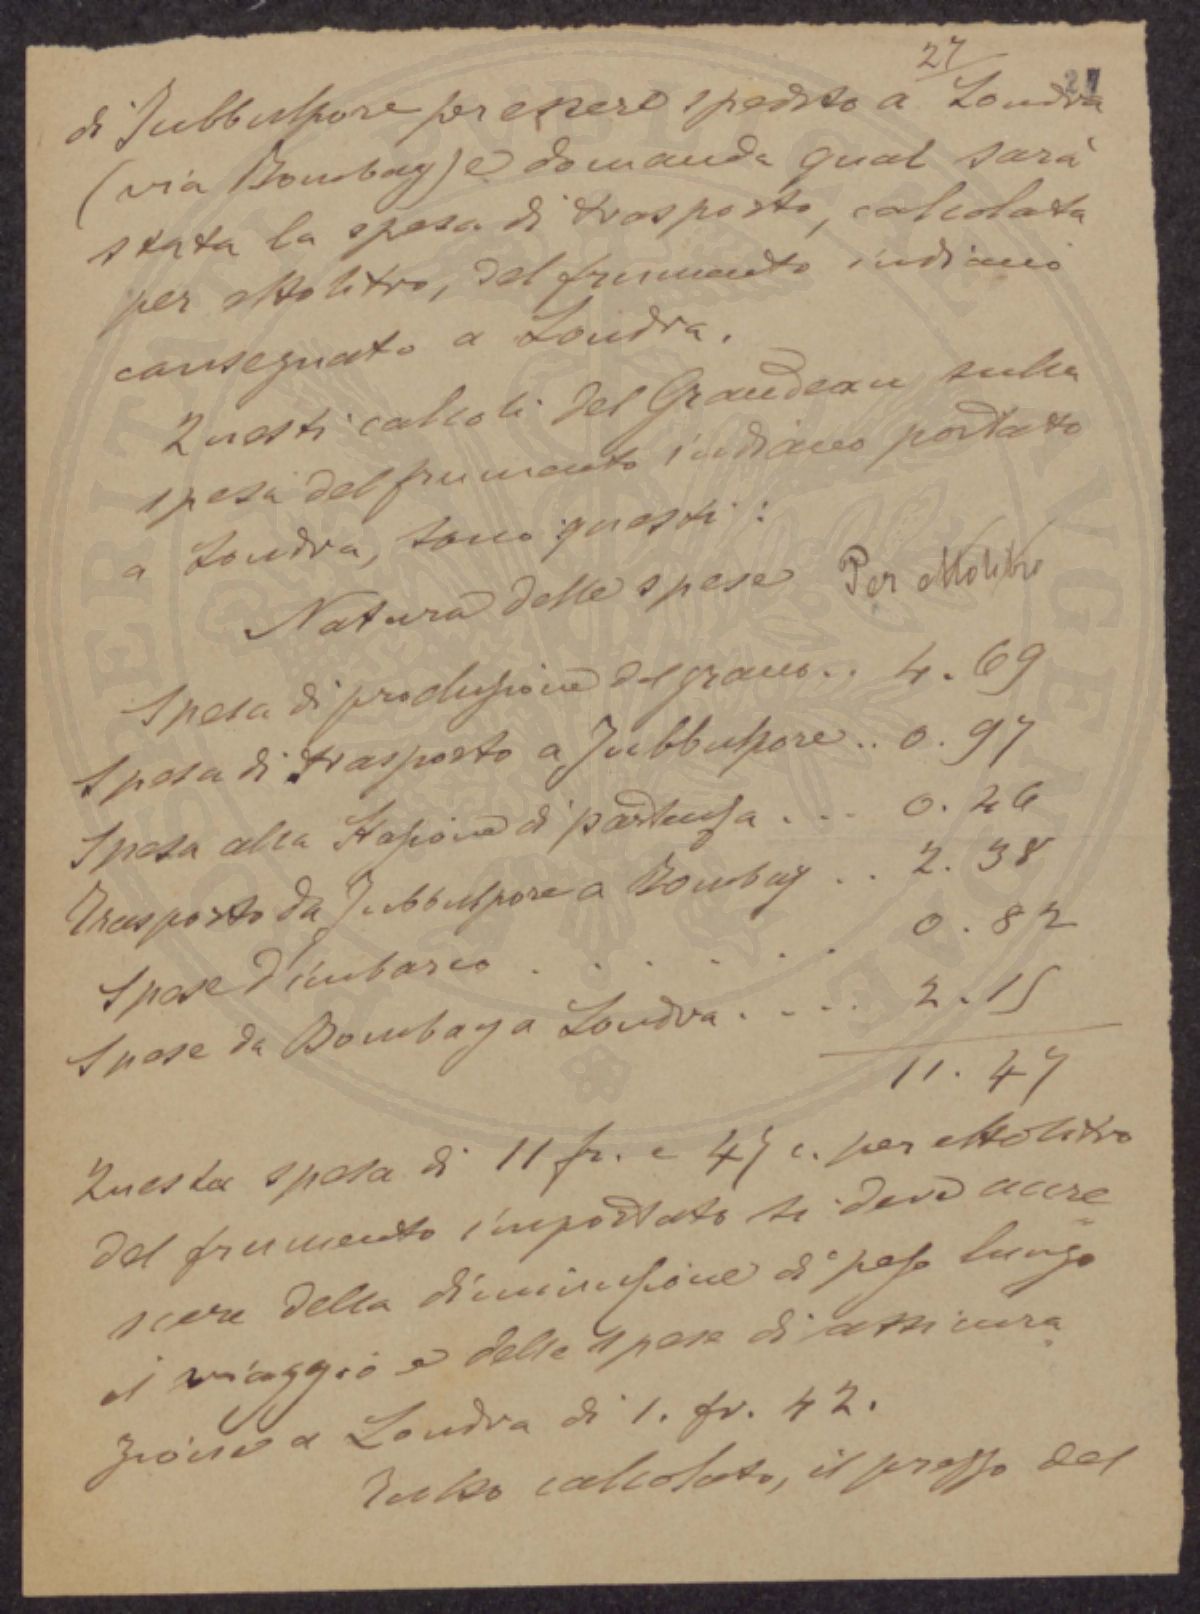 27
27
di Jubbulpore per essere spedito a Londra
(via Bombay) e domanda qual sarà
stata la spesa di trasporto, calcolata
per ettolitro, del frumento indiano
consegnato a Londra.
Questi calcoli del Grandeau sulla
spesa del frumento indiano portato
a Londra, sono questi:
Natura delle spese Per ettolitro
Spesa di produzione del grano.. 4.69
Spesa di trasporto a Jubbulpore.. 0.97
Spesa alla Stazione di partenza... 0.46
Trasporto da Jubbulpore a Bombay.. 2.38
Spese d'imbarco . . . . . . 0.82
Spese da Bombay a Londra.... 2.15
11.47
Questa spesa di 11 fr. e 47 c. per ettolitro
del frumento importato si deve accre
scere della diminuzione di peso lungo
il viaggio e delle spese di assicura
zione a Londra di 1. fr. 42.
Tutto calcolato, il prezzo del